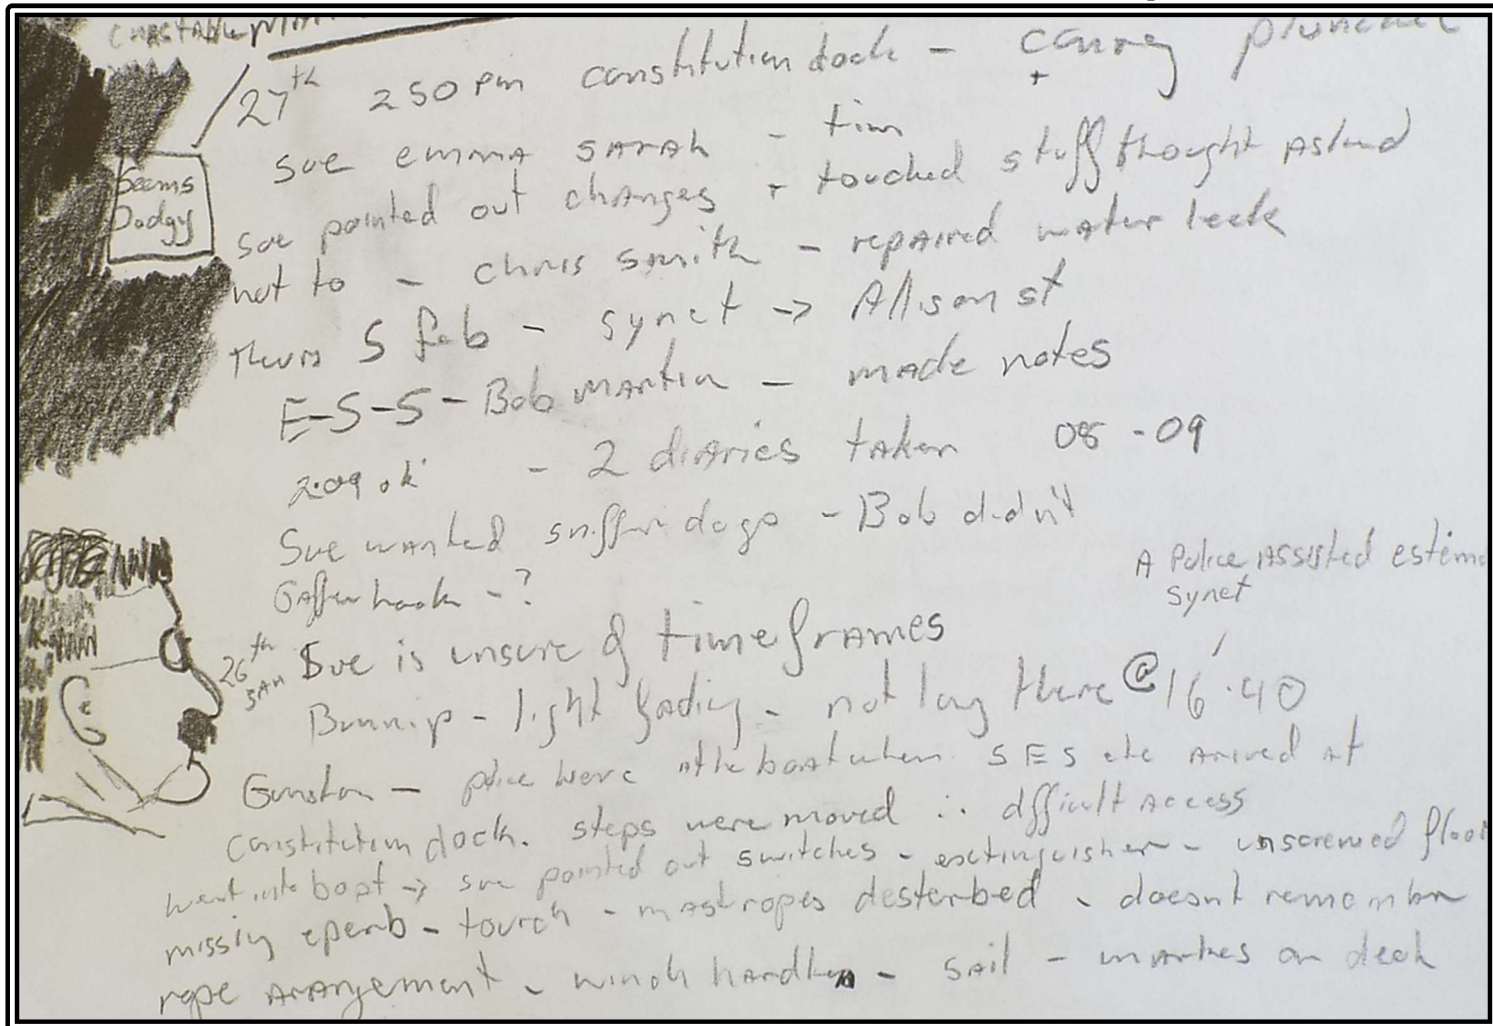 Constable
27th 250 pm constitution dock -
+
Sue emma SARAH - tim
Sue pointed out changes + touched stuff thought Asked
not to - chris smith - repaired water leek
Thurs 5 feb - synct -> Allison st
E-S-S - Bob Martin - made notes
2.09 ok - 2 diaries taken 08 - 09
Sue wanted sniffer dogs - Bob didn't
Gaffer hook - ?
A Police Assisted
synet
26th JAN Sue is unsure of timeframes
light fading - not long there @ 16.40
- police were at the boat when SES etc arrived at
constitution dock. steps were moved ∴ difficult Access
went into boat -> sue pointed out switches - extinguisher - unscrewed floor
missing eperb - tourch - mast ropes desterbed - doesnt remember
rope Arangement - winch handle - SAil - markes on deck
Seems
Dodgy